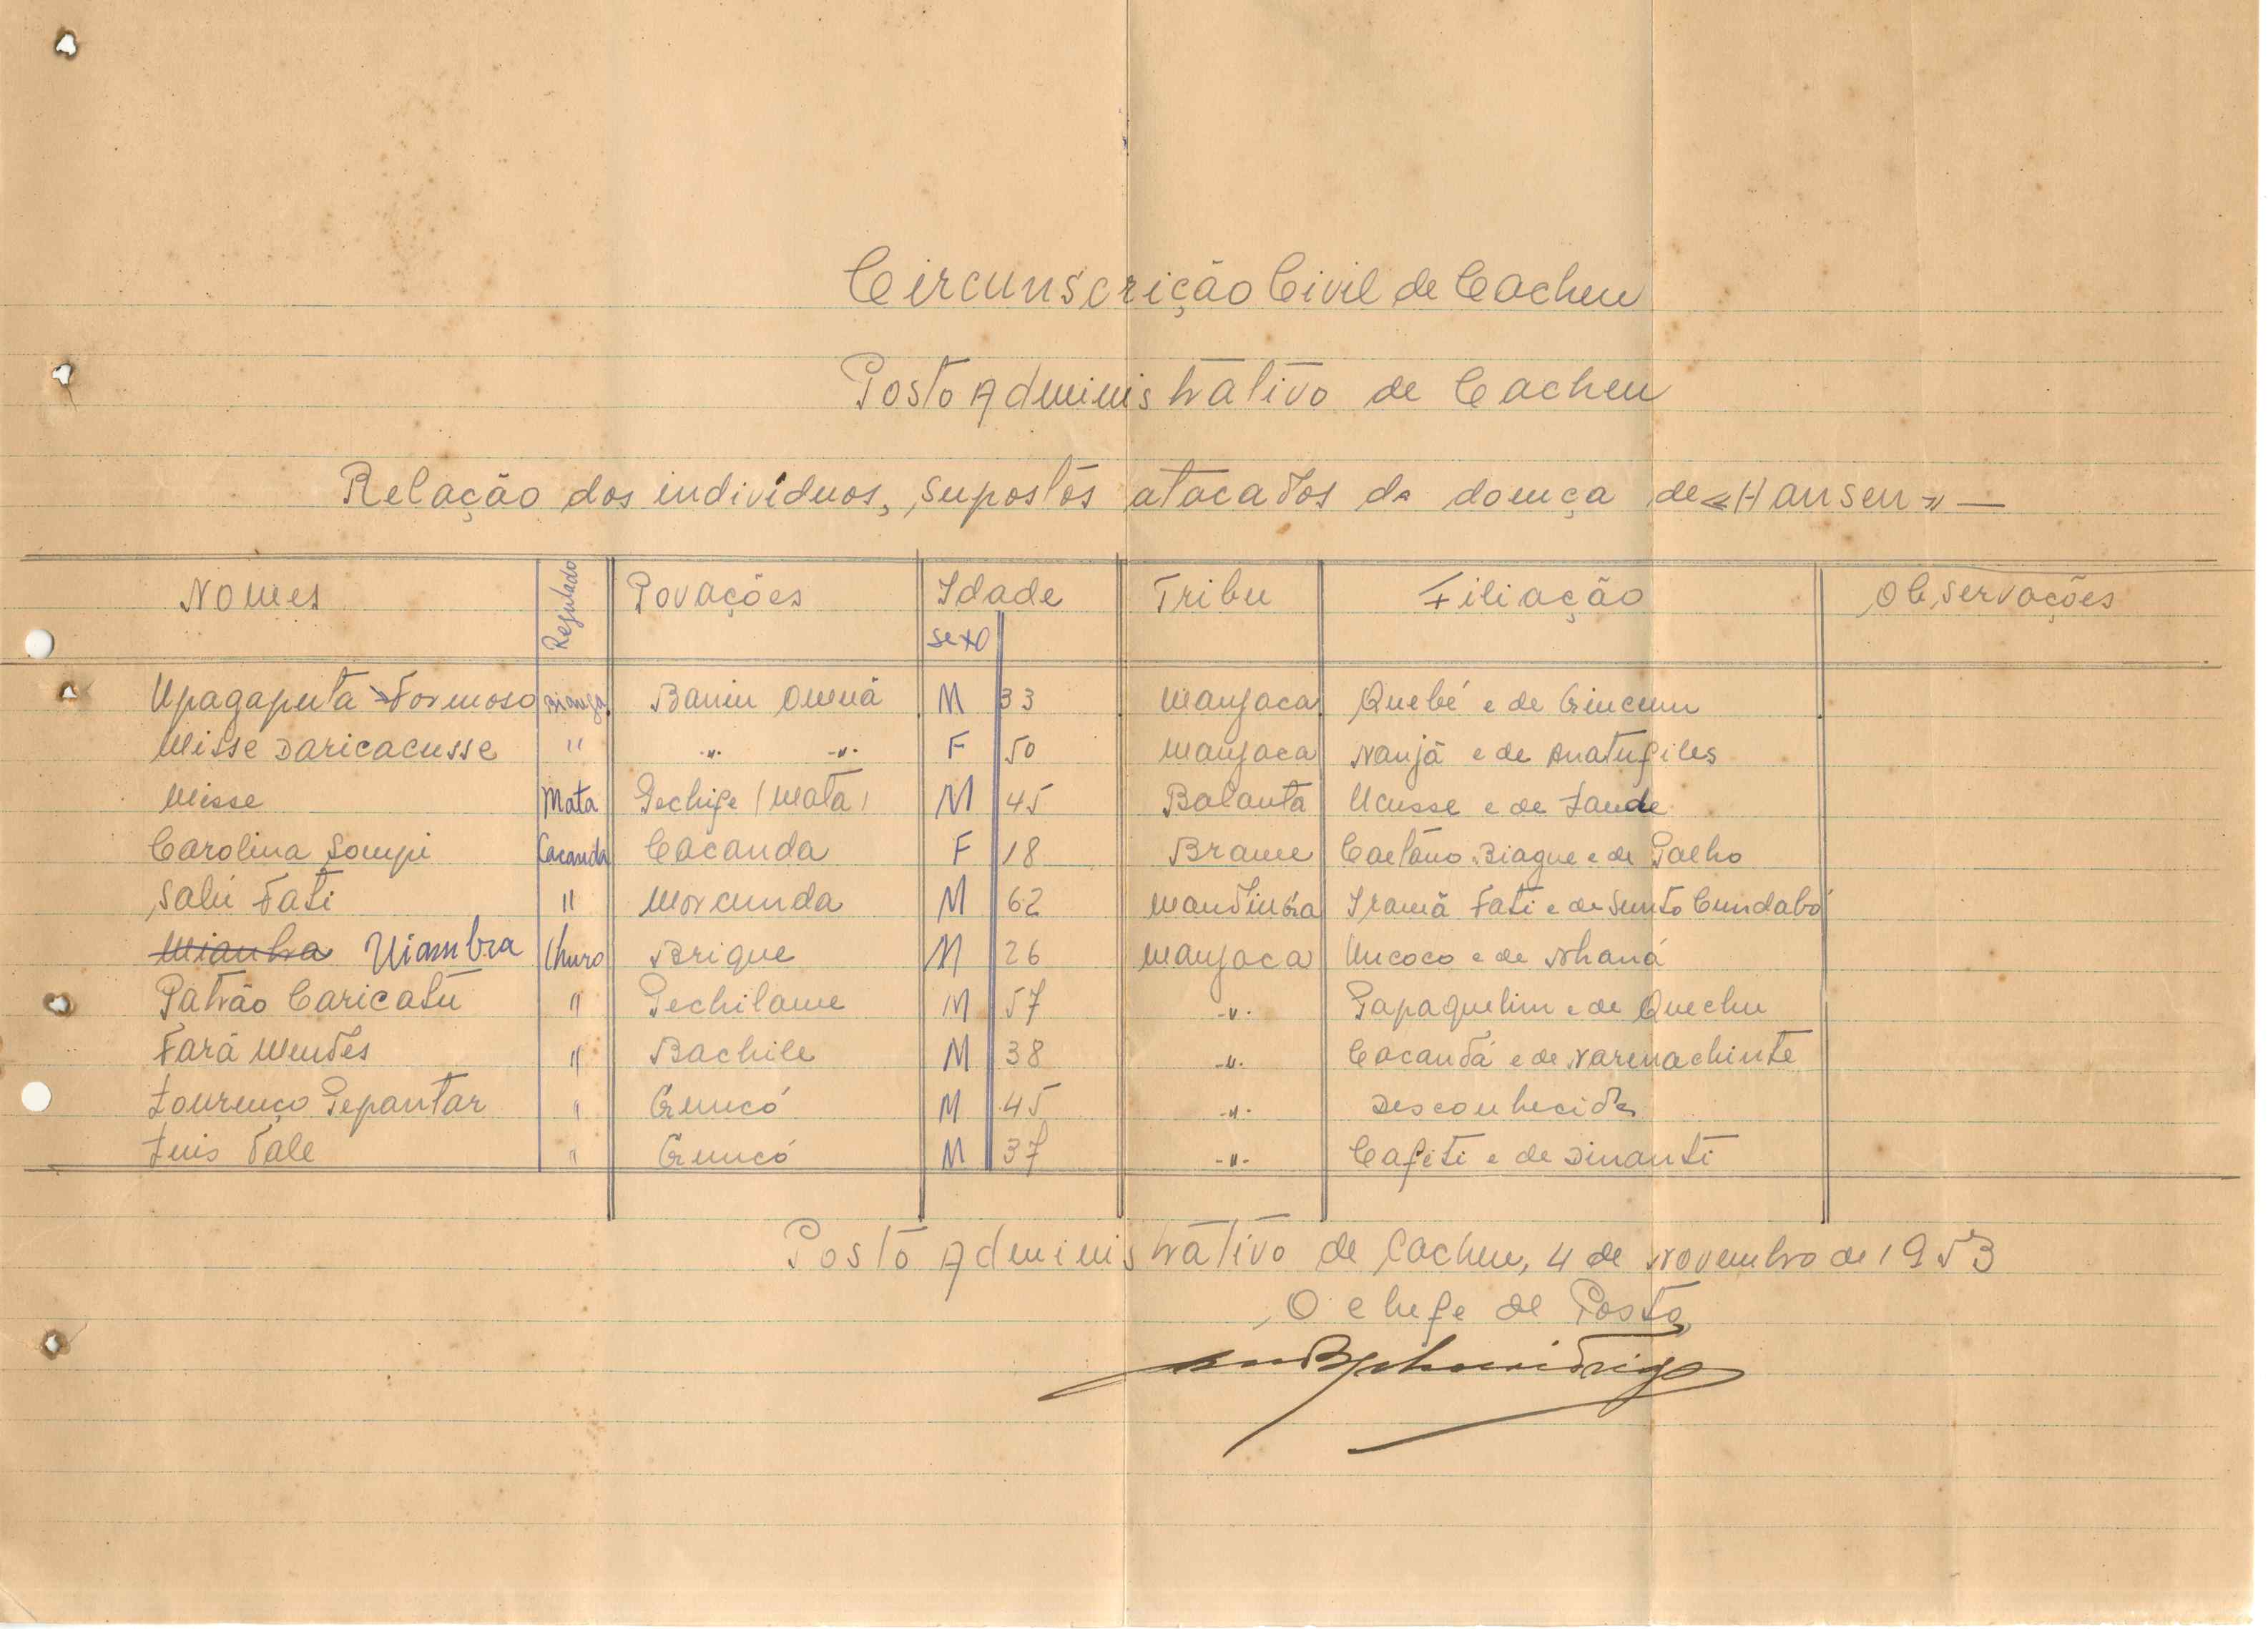 Circunscrição Civil de Cacheu
Posto Administrativo de Cacheu
Relação dos indivíduos, supostos atacados da doença de «Hansen» —
Nomes Regulado Povações Idade Tribu Filiação Observações
sexo
Upagaputa Formoso Bianga Baniu Omenã M 33 Manjaca Quebé e de
Misse Daricacusse " -"- -"- F 50 Manjaca Nanjã e de Anatufiles
Misse Mata Pechife (Mata) M 45 Balanta Ucusse e de Lande
Carolina Sompi Cacanda Cacanda F 18 Brame Caetano Biague e de Palho
Salú Fati " Morcunda M 62 Mandinga Iramã Fati e de Sunto Cundabó
Mianbra Uiambra Churo Brique M 26 Manjaca Uncoco e de Nhaná
Patrão Caricatú " Pechilame M 57 -"- Papaquelim e de Quechu
Fará Mendes " Bachile M 38 -"- Cacandá e de Narenachinte
Lourenço Pepantar " M 45 -"- Desconhecida
Luis Vale " M 37 -"- Cafiti e de Dinanti
Posto Administrativo de Cacheu, 4 de Novembro de 1953
O chefe de Posto,